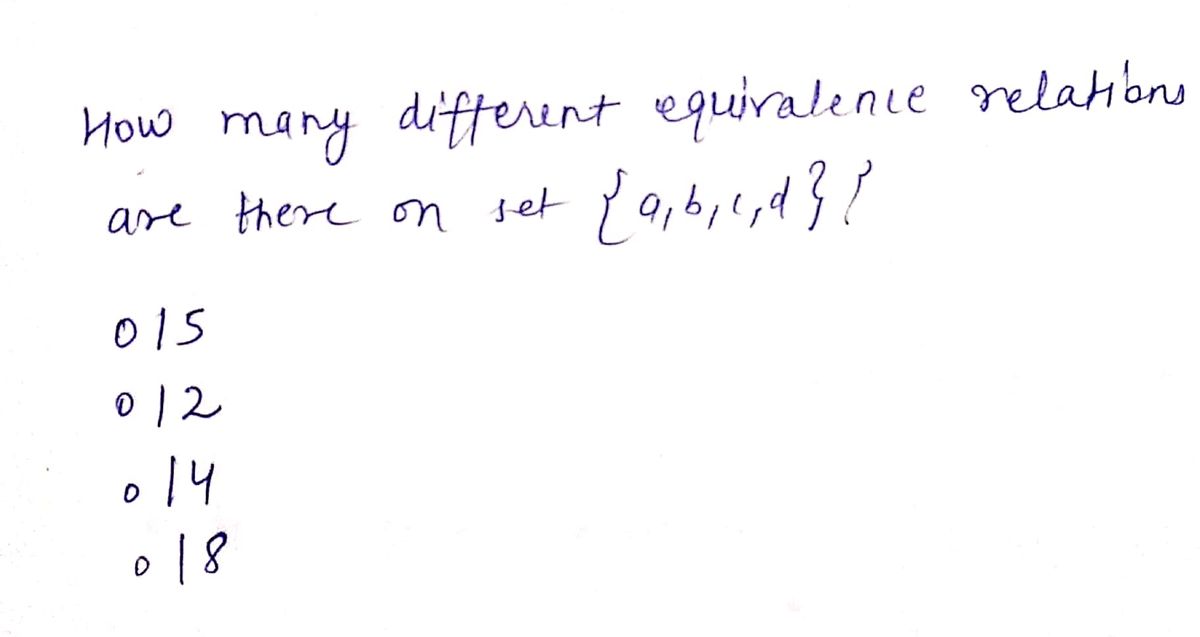 How many different equivalence relations
are there on set {a,b,c,d}?
o 15
o 12
o 14
o 18